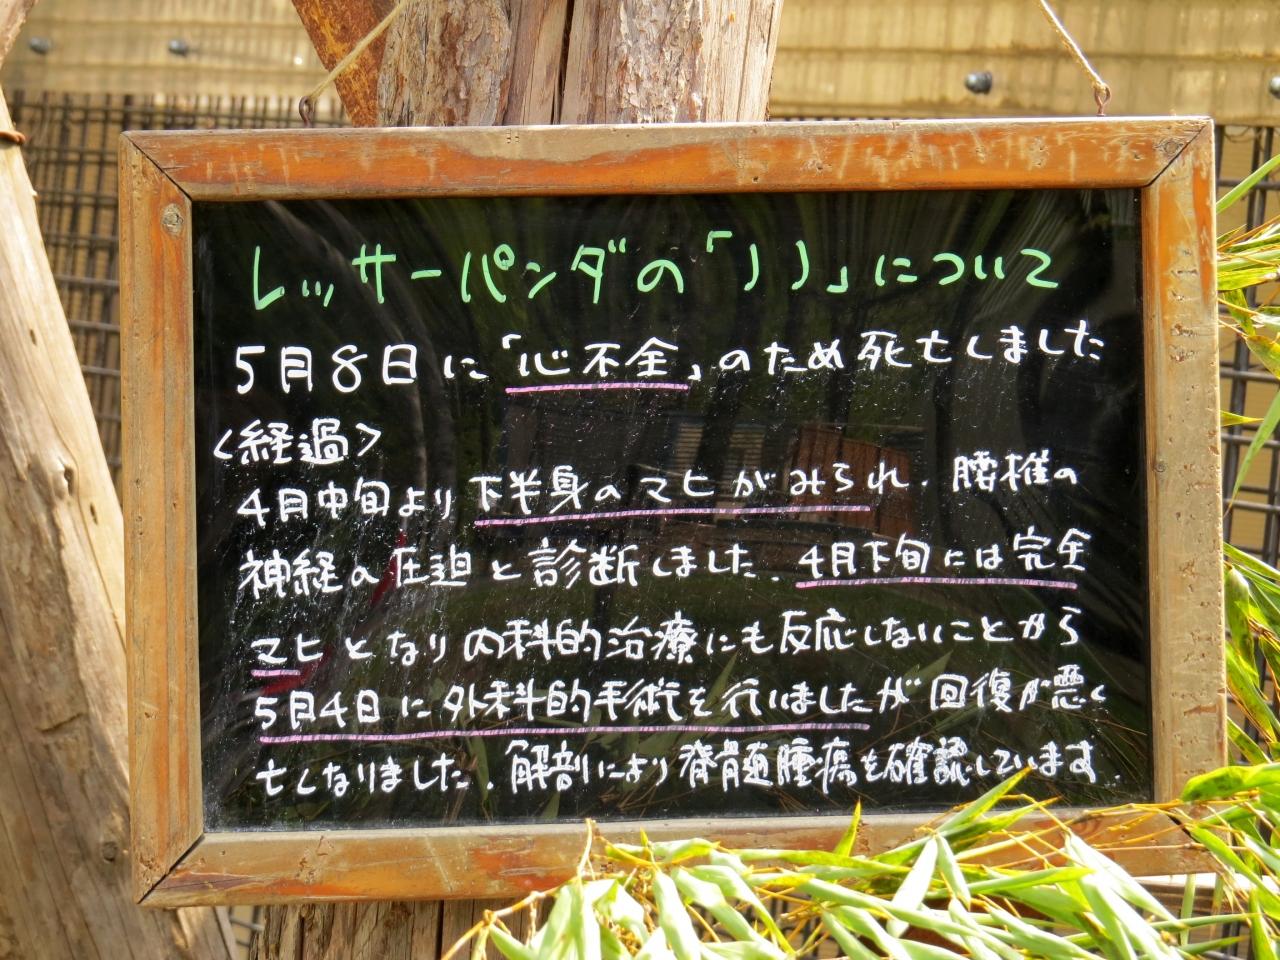 レッサーパンダの「ノノ」について
5月8日に「心不全」のため死亡しました
<経過>
4月中旬より下半身のマヒがみられ、腰椎の
神経の圧迫と診断しました。4月下旬には完全
マヒとなり内科的治療にも反応しないことから
5月4日に外科的手術を行いましたが回復が悪く
亡くなりました。解剖により脊髄腫瘍を確認しています。